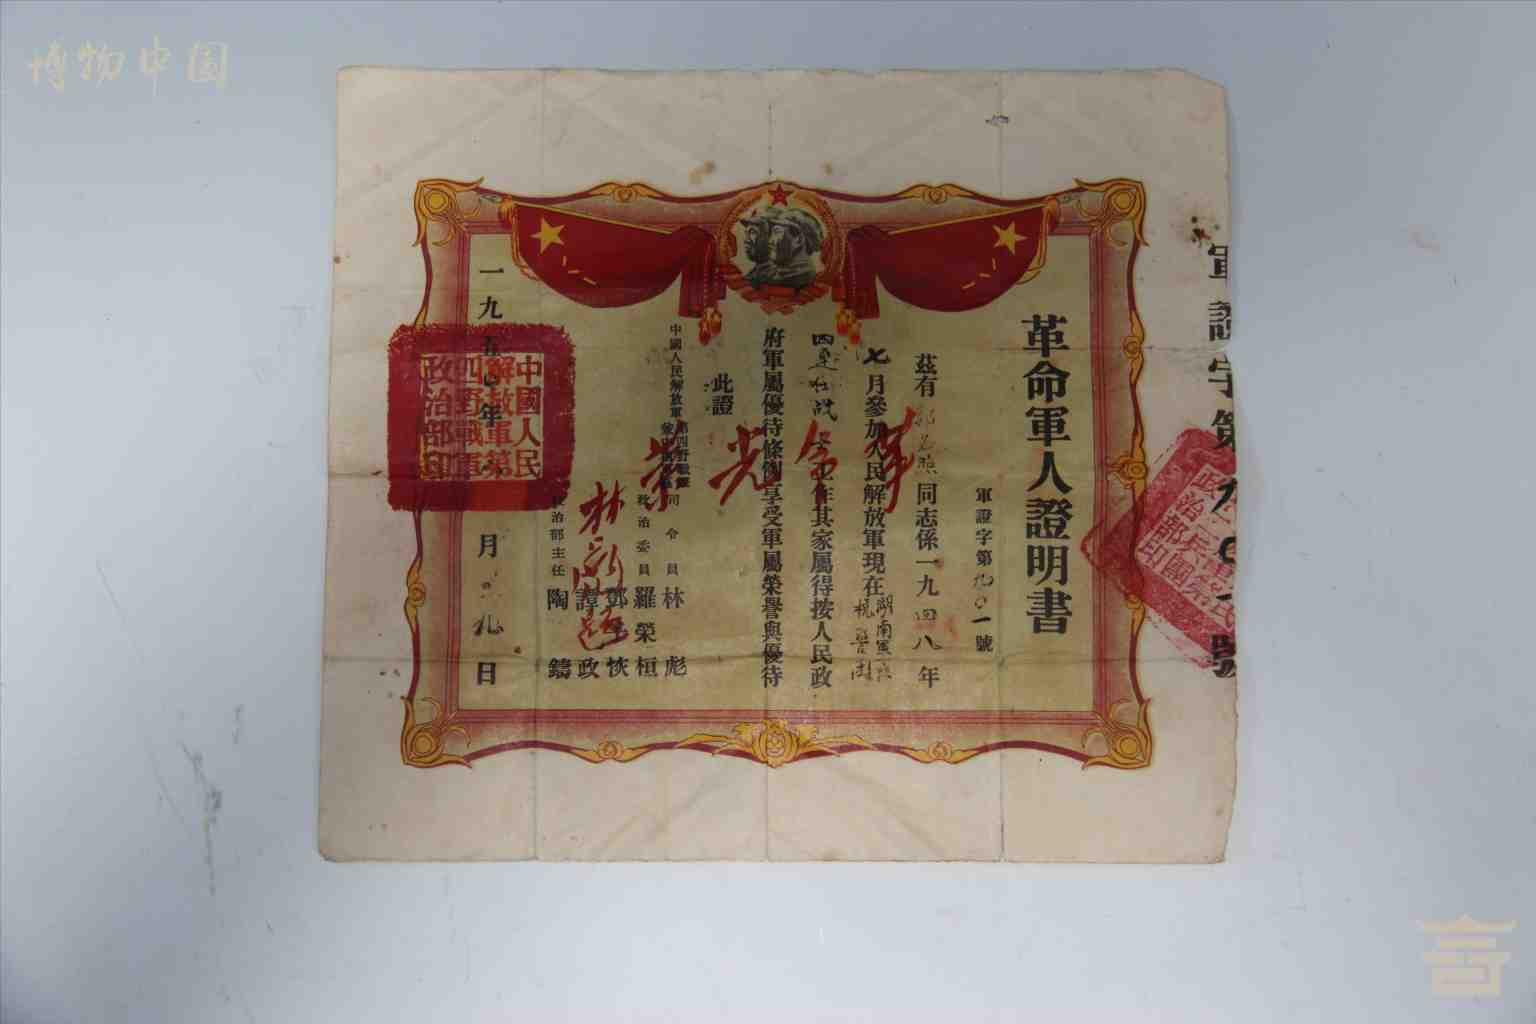 博物中国
軍證字第九〇一號
革命軍人證明書
軍證字第九〇一號
茲有
同志係一九四八年
七月參加人民解放軍現在湖南軍區
警衛團
四連任戰士工作其家屬得按人民政
府軍屬優待條例享受軍屬榮譽與優待
此證
革命光榮
中國人民解放軍第四野戰軍
司令員 林彪
政治委員 羅榮桓
鄧子恢
譚政
政治部主任 陶鑄
一九五〇年 月 九日
中國人民
解放軍第
四野戰軍
政治部印